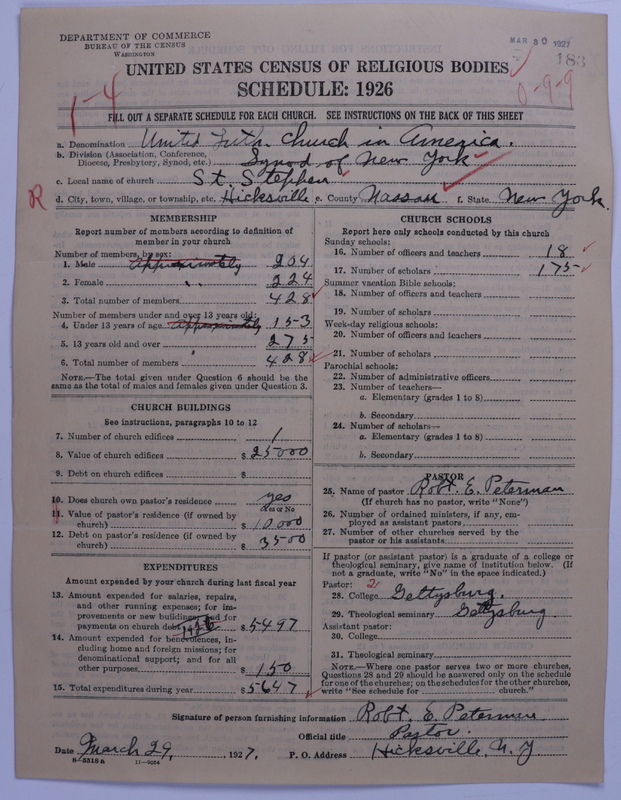 DEPARTMENT OF COMMERCE
BUREAU OF THE CENSUS
WASHINGTON
MAR 30 1927
183
0-9-9
1-4
UNITED STATES CENSUS OF RELIGIOUS BODIES
SCHEDULE: 1926
FILL OUT A SEPARATE SCHEDULE FOR EACH CHURCH. SEE INSTRUCTIONS ON THE BACK OF THIS SHEET
a. Denomination United Luth. Church in America.
b. Division (Association, Conference, Diocese, Presbytery, Synod, etc.) Synod of New York
c. Local name of church St Stephen
R
d. City, town, village, or township, etc. Hicksville e. County Nassau f. State New York.
MEMBERSHIP
Report number of members according to definition of member in your church
Number of members, by sex:
1. Male approximately 204
2. Female " 224
3. Total number of members 428
Number of members under and over 13 years old:
4. Under 13 years of age approximately 153
5. 13 years old and over " 275
6. Total number of members 428
NOTE.—The total given under Question 6 should be the same as the total of males and females given under Question 3.
CHURCH BUILDINGS
See instructions, paragraphs 10 to 12
7. Number of church edifices 1
8. Value of church edifices $ 25000
9. Debt on church edifices $
10. Does church own pastor's residence yes
Yes or No
11. Value of pastor's residence (if owned by church) $ 10000
12. Debt on pastor's residence (if owned by church) $ 3500
EXPENDITURES
Amount expended by your church during last fiscal year
13. Amount expended for salaries, repairs, and other running expenses; for improvements or new buildings, and for payments on church debt $ 5497
1926
14. Amount expended for benevolences, including home and foreign missions; for denominational support; and for all other purposes $ 150
15. Total expenditures during year $ 5647
CHURCH SCHOOLS
Report here only schools conducted by this church
Sunday schools:
16. Number of officers and teachers 18
17. Number of scholars 175
Summer vacation Bible schools:
18. Number of officers and teachers
19. Number of scholars
Week-day religious schools:
20. Number of officers and teachers
21. Number of scholars
Parochial schools:
22. Number of administrative officers
23. Number of teachers—
a. Elementary (grades 1 to 8)
b. Secondary
24. Number of scholars—
a. Elementary (grades 1 to 8)
b. Secondary
PASTOR
25. Name of pastor Robt. E. Peterman
(If church has no pastor, write "None")
26. Number of ordained ministers, if any, employed as assistant pastors
27. Number of other churches served by the pastor or his assistants
If pastor (or assistant pastor) is a graduate of a college or theological seminary, give name of institution below. (If not a graduate, write "No" in the space indicated.)
Pastor: 2
28. College Gettysburg.
29. Theological seminary Gettysburg.
Assistant pastor:
30. College
31. Theological seminary
NOTE.—Where one pastor serves two or more churches, Questions 28 and 29 should be answered only on the schedule for one of the churches; on the schedules for the other churches, write "See schedule for church."
Signature of person furnishing information Robt. E. Peterman
Official title Pastor.
Date March 29, 1927. P. O. Address Hicksville, N. Y
8-5518 a 11-9064